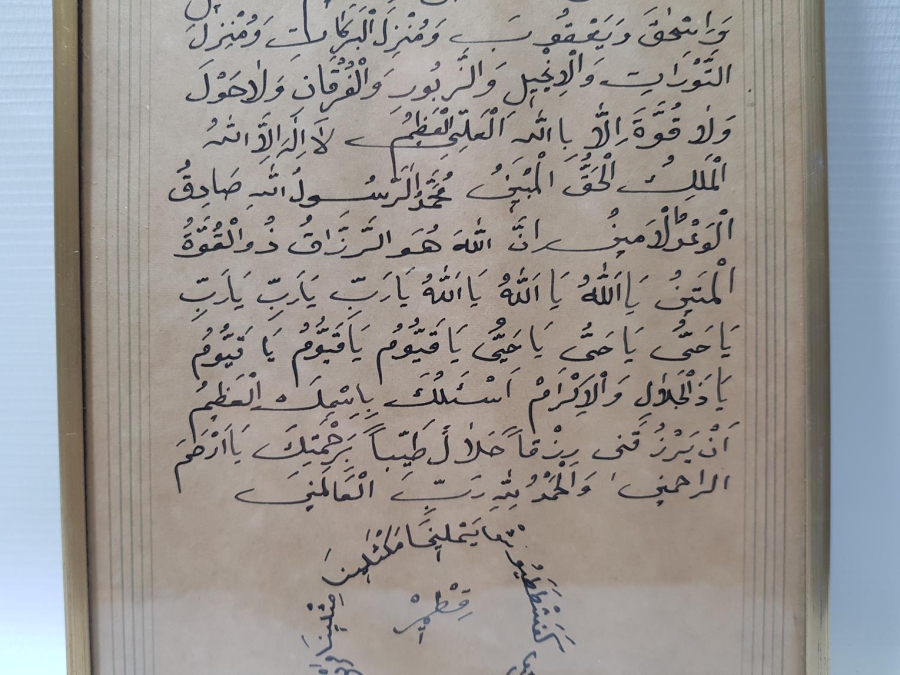 وَاِسْحٰقَ وَيَعْقُوبَ وَمُنْزِلَ الْبَرَكَاتِ وَمُنْزِلَ
التَّوْرَاتِ وَالْاِنْجِيلِ وَالزَّبُورِ وَالْفُرْقَانِ وَلَاحَوْلَ
وَلَا قُوَّةَ اِلَّا بِاللهِ الْعَلِىِّ الْعَظِيمُ لَا اِلٰهَ اِلَّا اللهُ
الْمَلِكُ الْحَقُّ الْمُبِينُ مُحَمَّدُ الرَّسُولُ اللهِ صَادِقُ
الْوَعْدُ الْاَمِينُ اِنَّ اللهَ هُوَ الرَّزَّاقُ ذُو الْقُوَّةُ
الْمَتِينُ يَا اَللهُ يَا اَللهُ يَا اَللهُ يَارَبِّ يَارَبِّ يَارَبِّ
يَاحَىُّ يَاحَىُّ يَاحَىُّ يَاقَيُّومُ يَاقَيُّومُ يَا قَيُّومُ
يَاذَالْجَلَالِ وَالْاِكْرَامْ اَسْئَلُكَ بِاِسْمِكَ الْعَظِيمُ
اَنْ يَرْزُقَنِى رِزْقاً حَلَالً طَيِّباً بِرَحْمَتِكَ يَااَرْحَمَ
الراحمين وَالْحَمْدُ لِلّٰهِ رَبِّ الْعَالَمِينَ
يَمْلِيخَا مَكْثَلِينَا
قِطْمِيرْ